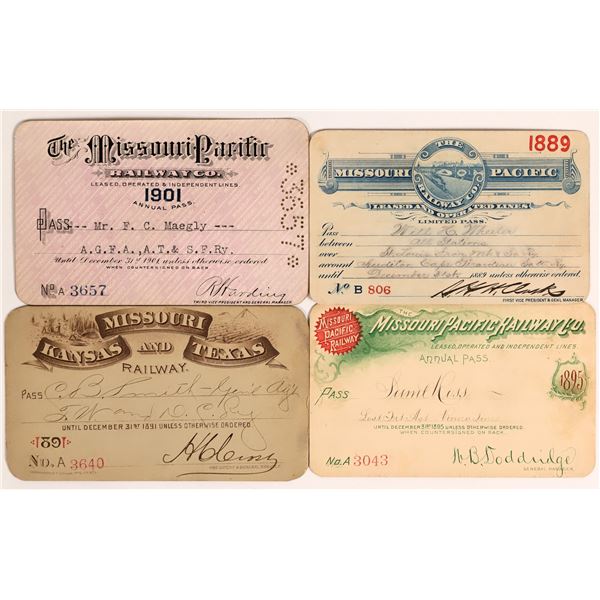 The Missouri Pacific
RAILWAY CO.
LEASED, OPERATED & INDEPENDENT LINES.
1901
ANNUAL PASS.
PASS --- Mr. F. C. Maegly ---
A.G.F.A., A.T.& S.F.Ry.
Until December 31st 1901 unless otherwise ordered.
WHEN COUNTERSIGNED ON BACK.
No. A 3657
THIRD VICE PRESIDENT AND GENERAL MANAGER.
1889
THE
MISSOURI PACIFIC
RAILWAY CO.
LEASED AND OPERATED LINES
LIMITED PASS.
Pass Will H. Wheeler
between All Stations
account
until December 31st 1889 unless otherwise ordered.
No B 806
FIRST VICE PRESIDENT & GENL MANAGER.
MISSOURI
KANSAS AND TEXAS
RAILWAY.
PASS C. B. Smith - Genl Agt
F. W. and D. C. Ry
UNTIL DECEMBER 31ST 1891 UNLESS OTHERWISE ORDERED.
1891
No. A 3640
THE
MISSOURI PACIFIC RAILWAY CO.
LEASED, OPERATED AND INDEPENDENT LINES.
MISSOURI
PACIFIC
RAILWAY
ANNUAL PASS.
1895
PASS
UNTIL DECEMBER 31ST 1895 UNLESS OTHERWISE ORDERED.
WHEN COUNTERSIGNED ON BACK.
No. A 3043
W. B. Doddridge
GENERAL MANAGER.